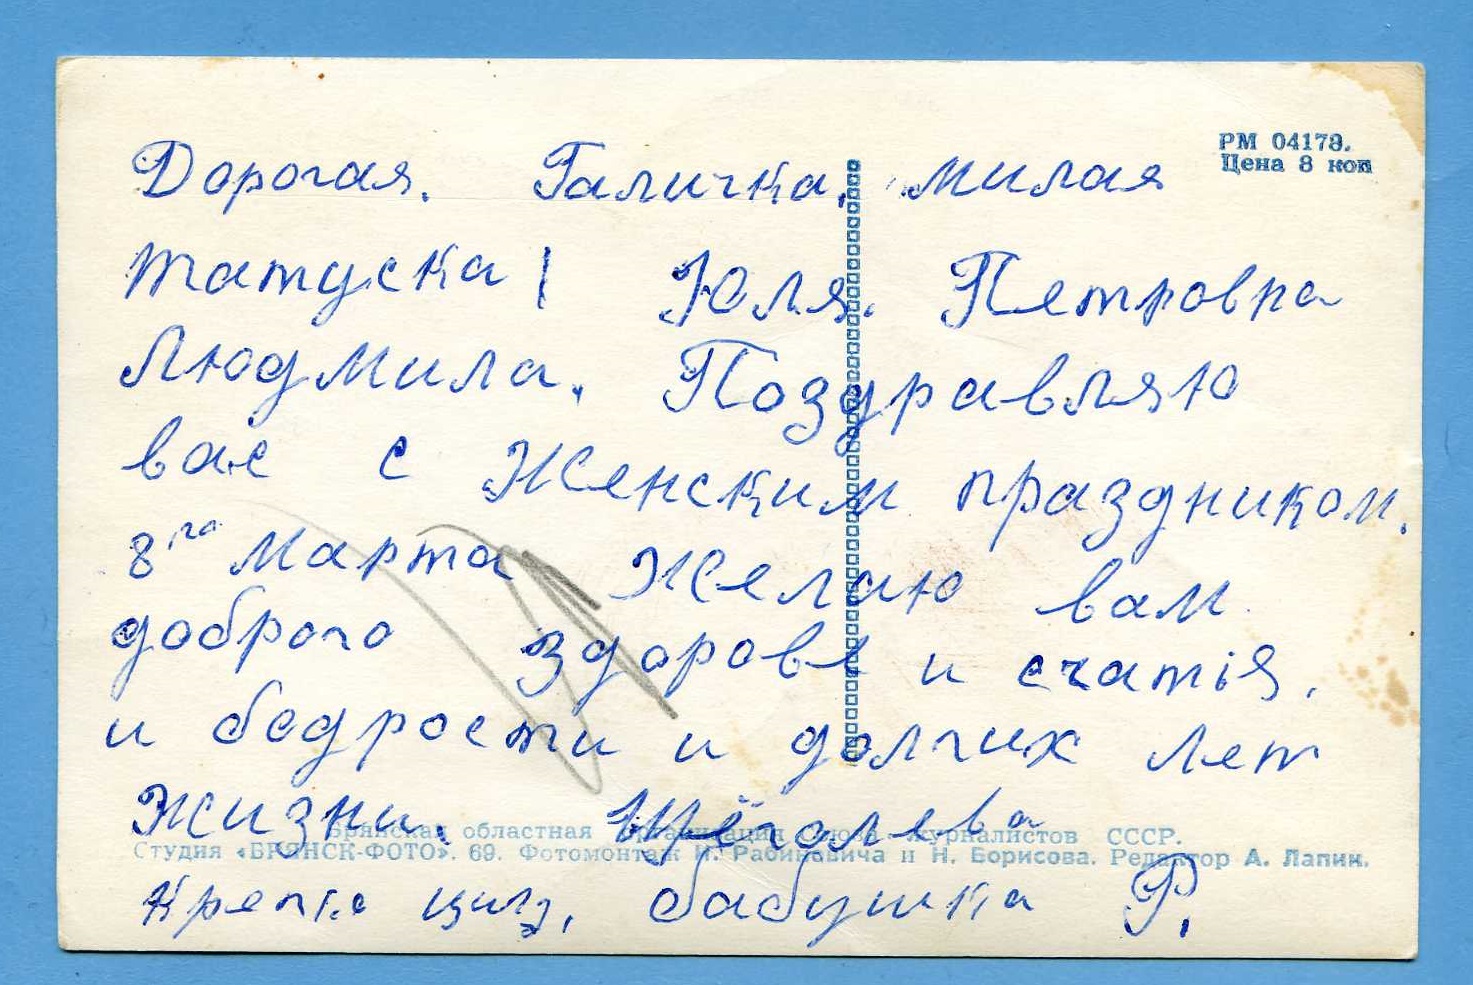 РМ 04179.
Цена 8 коп
Дорогая. Галичка, милая
татуска! Юля. Петровна
Людмила. Поздравляю
вас с Женским праздником.
8го Марта Желаю вам
доброго здоровя и счатія.
и бодрости и долгих лет
Жизни. Щёголева
Брянская областная организация Союза журналистов СССР.
Студия «БРЯНСК-ФОТО». 69. Фотомонтаж И. Рабиновича и Н. Борисова. Редактор А. Лапин.
Крепко цулу, бабушка Р.